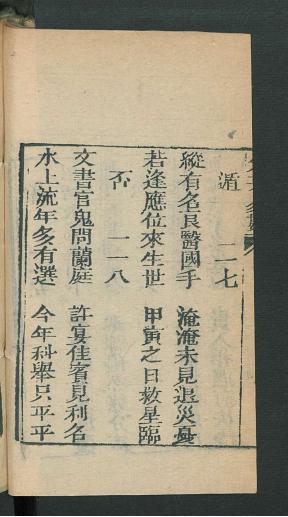 遁　二一七
縱有名良醫國手　淹淹未見退災憂
若逢應位來生世　甲寅之日救星臨
否　二一八
文書官鬼問蘭庭　許宴佳賓見利名
水上流年多有選　今年科舉只平平